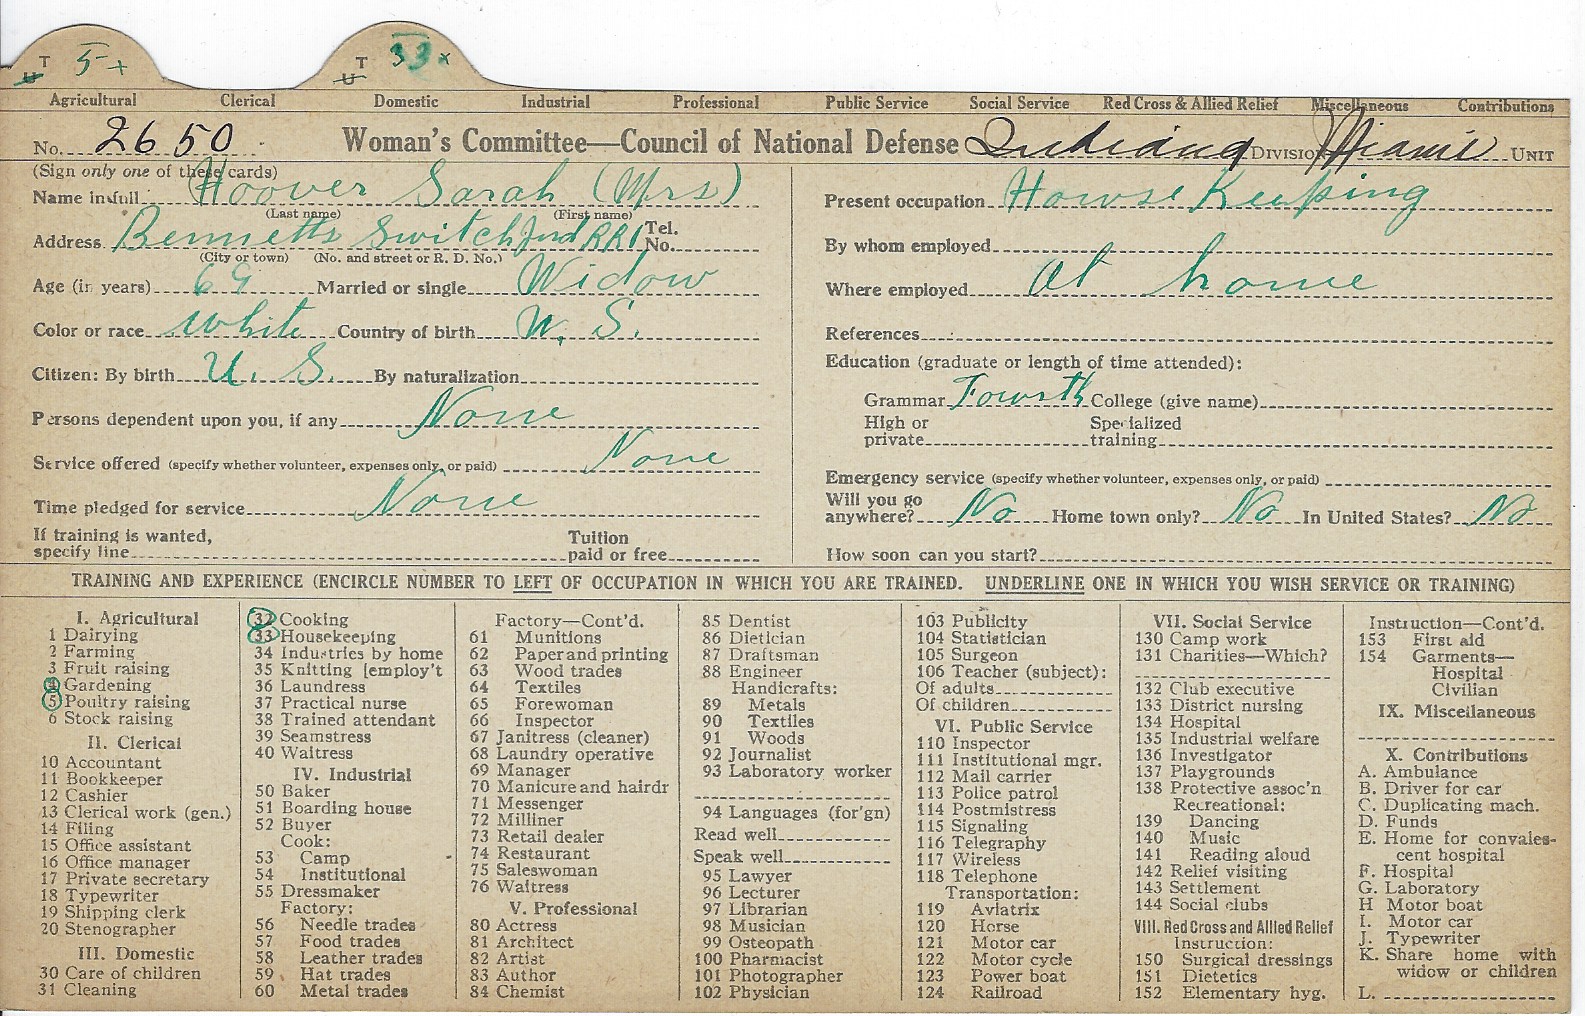 T U 5 + T U 33 x
Agricultural Clerical Domestic Industrial Professional Public Service Social Service Red Cross & Allied Relief Miscellaneous Contributions
No. 2650 Woman's Committee—Council of National Defense Indiana DIVISION Miami UNIT
(Sign only one of these cards)
Name in full Hoover Sarah (Mrs)
(Last name) (First name)
Address Bennetts Switch Ind RR1 Tel. No.
(City or town) (No. and street or R. D. No.)
Age (in years) 69 Married or single Widow
Color or race White Country of birth U. S.
Citizen: By birth U. S. By naturalization
Persons dependent upon you, if any None
Service offered (specify whether volunteer, expenses only, or paid) None
Time pledged for service None
If training is wanted, specify line Tuition paid or free
Present occupation Howse Keeping
By whom employed
Where employed At home
References
Education (graduate or length of time attended):
Grammar Fowrth College (give name)
High or private Specialized training
Emergency service (specify whether volunteer, expenses only, or paid)
Will you go anywhere? No Home town only? No In United States? No
How soon can you start?
TRAINING AND EXPERIENCE (ENCIRCLE NUMBER TO LEFT OF OCCUPATION IN WHICH YOU ARE TRAINED. UNDERLINE ONE IN WHICH YOU WISH SERVICE OR TRAINING)
I. Agricultural
1 Dairying
2 Farming
3 Fruit raising
4 Gardening
5 Poultry raising
6 Stock raising
II. Clerical
10 Accountant
11 Bookkeeper
12 Cashier
13 Clerical work (gen.)
14 Filing
15 Office assistant
16 Office manager
17 Private secretary
18 Typewriter
19 Shipping clerk
20 Stenographer
III. Domestic
30 Care of children
31 Cleaning
32 Cooking
33 Housekeeping
34 Industries by home
35 Knitting [employ't
36 Laundress
37 Practical nurse
38 Trained attendant
39 Seamstress
40 Waitress
IV. Industrial
50 Baker
51 Boarding house
52 Buyer
Cook:
53 Camp
54 Institutional
55 Dressmaker
Factory:
56 Needle trades
57 Food trades
58 Leather trades
59 Hat trades
60 Metal trades
Factory—Cont'd.
61 Munitions
62 Paper and printing
63 Wood trades
64 Textiles
65 Forewoman
66 Inspector
67 Janitress (cleaner)
68 Laundry operative
69 Manager
70 Manicure and hairdr
71 Messenger
72 Milliner
73 Retail dealer
74 Restaurant
75 Saleswoman
76 Waitress
V. Professional
80 Actress
81 Architect
82 Artist
83 Author
84 Chemist
85 Dentist
86 Dietician
87 Draftsman
88 Engineer
Handicrafts:
89 Metals
90 Textiles
91 Woods
92 Journalist
93 Laboratory worker
94 Languages (for'gn)
Read well
Speak well
95 Lawyer
96 Lecturer
97 Librarian
98 Musician
99 Osteopath
100 Pharmacist
101 Photographer
102 Physician
103 Publicity
104 Statistician
105 Surgeon
106 Teacher (subject):
Of adults
Of children
VI. Public Service
110 Inspector
111 Institutional mgr.
112 Mail carrier
113 Police patrol
114 Postmistress
115 Signaling
116 Telegraphy
117 Wireless
118 Telephone
Transportation:
119 Aviatrix
120 Horse
121 Motor car
122 Motor cycle
123 Power boat
124 Railroad
VII. Social Service
130 Camp work
131 Charities—Which?
132 Club executive
133 District nursing
134 Hospital
135 Industrial welfare
136 Investigator
137 Playgrounds
138 Protective assoc'n
Recreational:
139 Dancing
140 Music
141 Reading aloud
142 Relief visiting
143 Settlement
144 Social clubs
VIII. Red Cross and Allied Relief
Instruction:
150 Surgical dressings
151 Dietetics
152 Elementary hyg.
Instruction—Cont'd.
153 First aid
154 Garments—
Hospital
Civilian
IX. Miscellaneous
X. Contributions
A. Ambulance
B. Driver for car
C. Duplicating mach.
D. Funds
E. Home for convales-
cent hospital
F. Hospital
G. Laboratory
H Motor boat
I. Motor car
J. Typewriter
K. Share home with
widow or children
L.